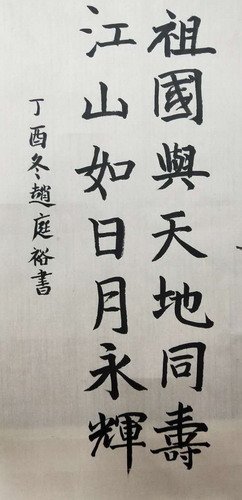 祖國與天地同壽
江山如日月永輝
丁酉冬趙庭裕書